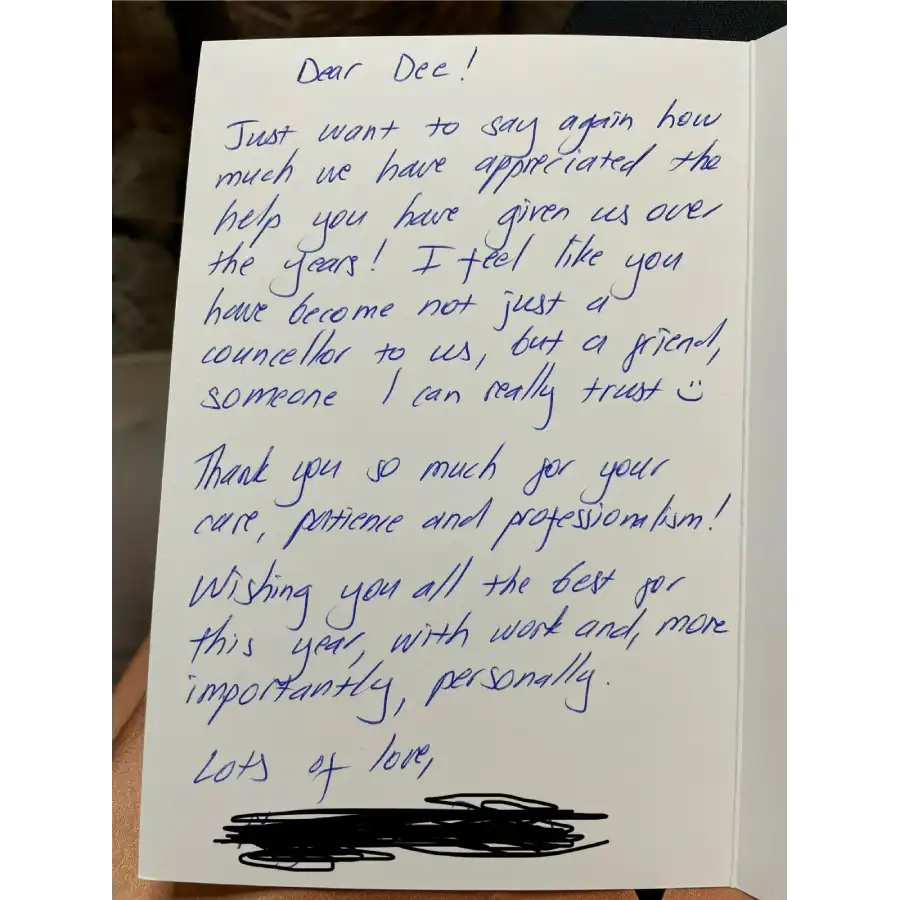 Dear Dee!
Just want to say again how
much we have appreciated the
help you have given us over
the years! I feel like you
have become not just a
councellor to us, but a friend,
someone I can really trust :)
Thank you so much for your
care, patience and professionalism!
Wishing you all the best for
this year, with work and, more
importantly, personally.
Lots of love,